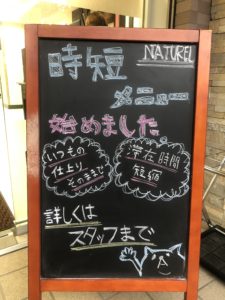 NATUREL
時短
メニュー
始めました
いつもの
仕上り
そのままで
滞在時間
短縮
詳しくは
スタッフまで